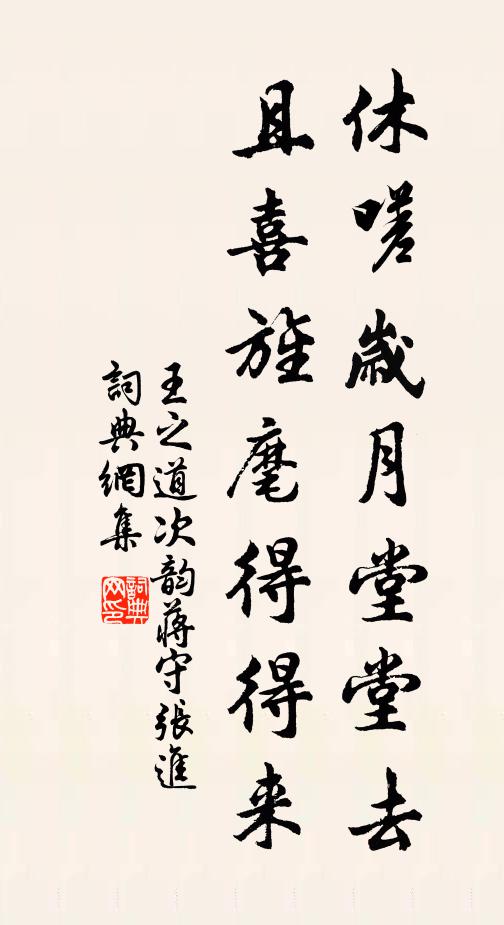 休嗟歲月堂堂去
且喜旌麾得得来
王之道次韵蔣守張進
詞典網集
詞典网印